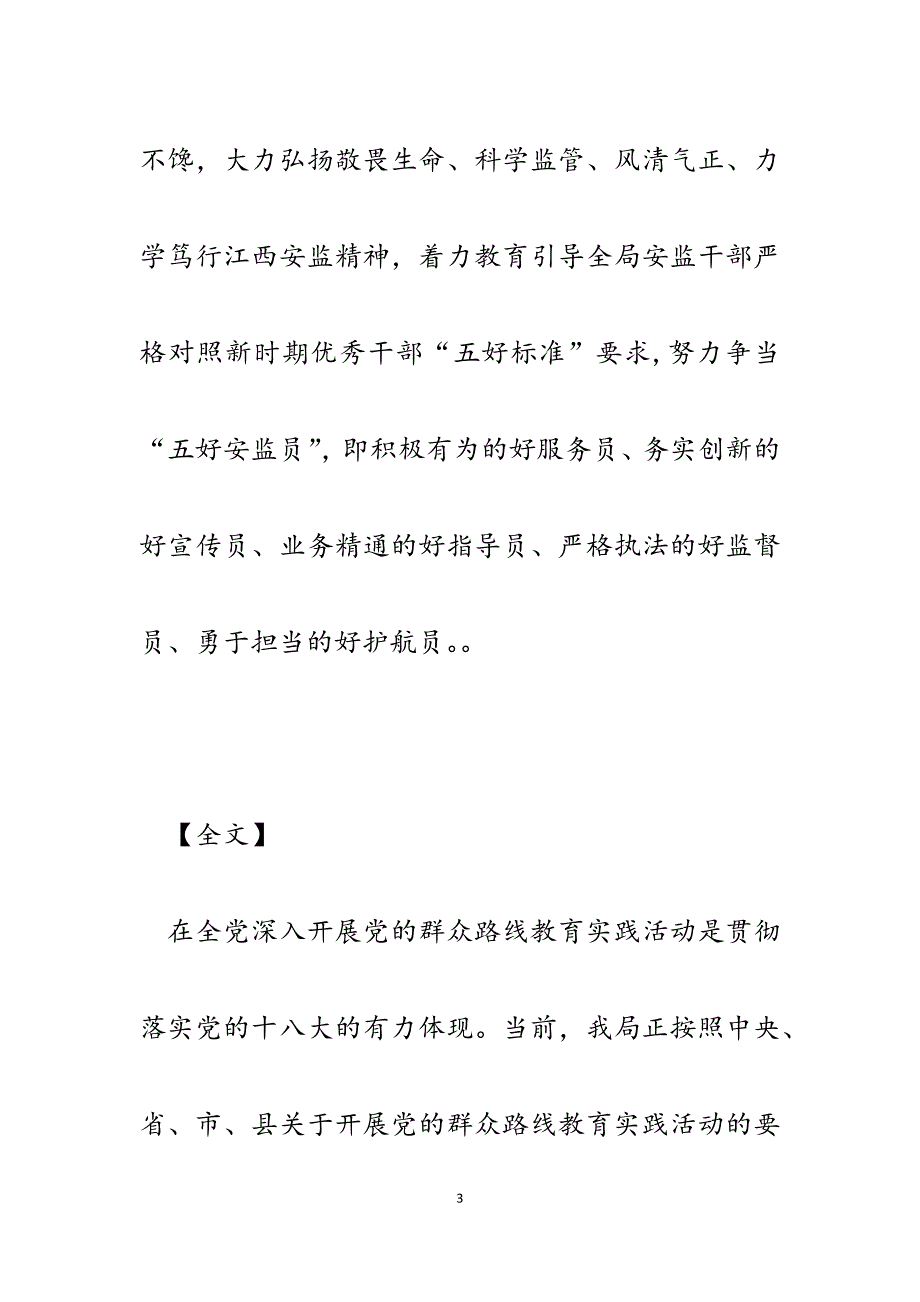 不馋，大力弘扬敬畏生命、科学监管、风清气正、力
学笃行江西安监精神，着力教育引导全局安监干部严
格对照新时期优秀干部“五好标准”要求,努力争当
“五好安监员”,即积极有为的好服务员、务实创新的
好宣传员、业务精通的好指导员、严格执法的好监督
员、勇于担当的好护航员。。
【全文】
在全党深入开展党的群众路线教育实践活动是贯彻
落实党的十八大的有力体现。当前，我局正按照中央、
省、市、县关于开展党的群众路线教育实践活动的要
3